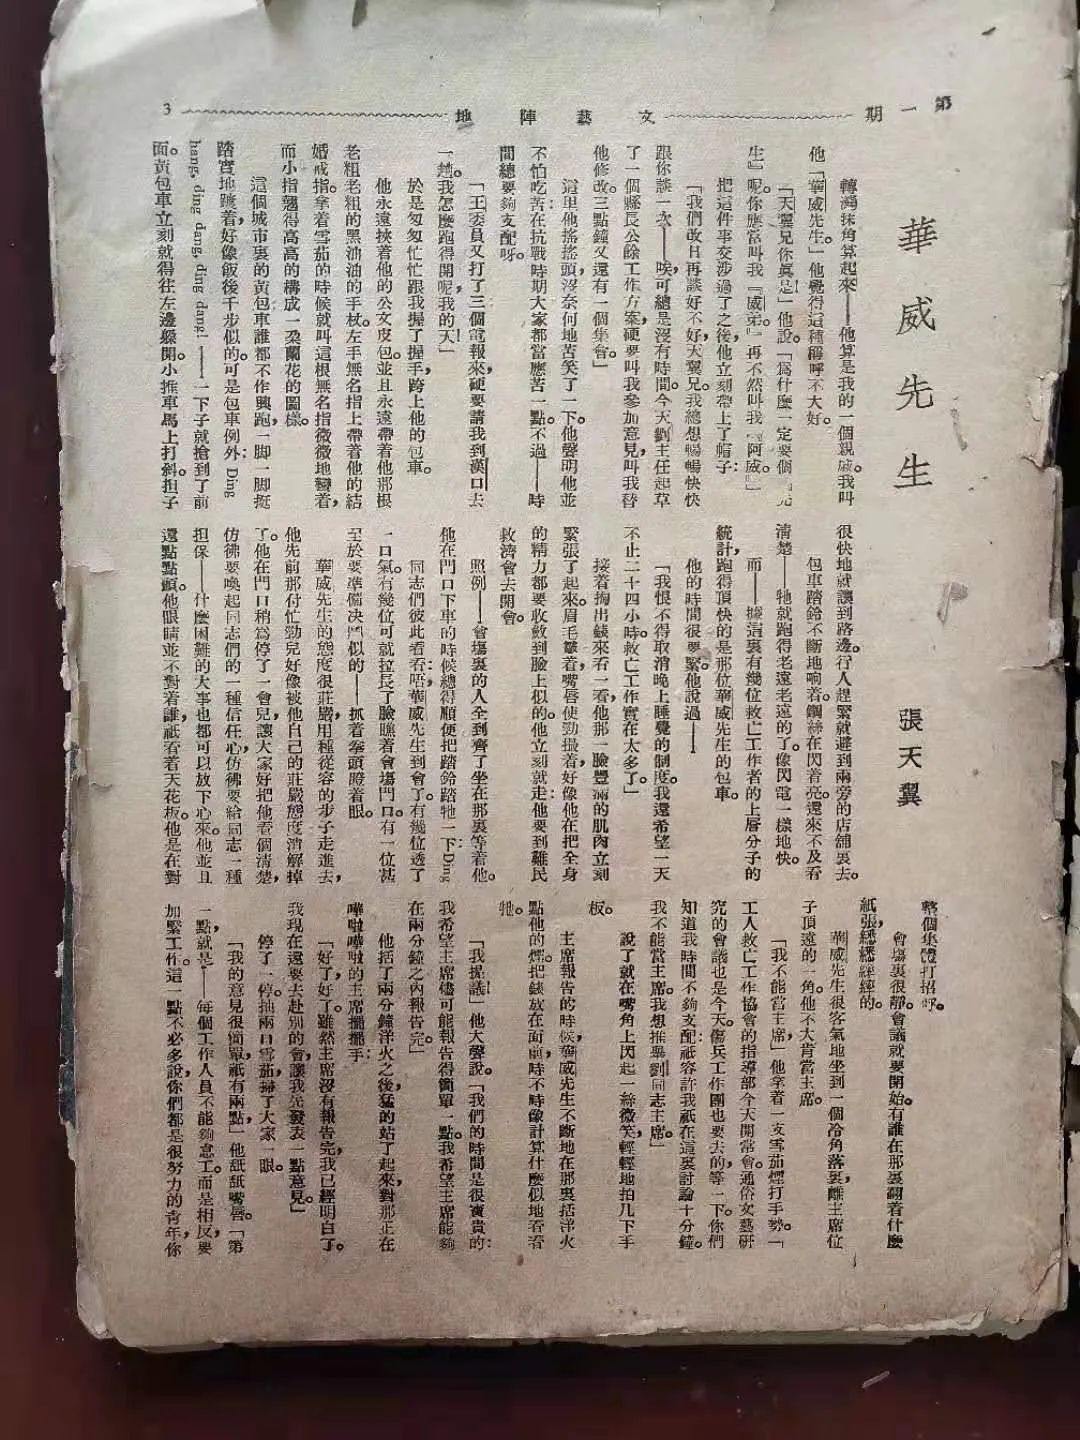 第一期
文藝陣地
3
華威先生
張天翼
轉灣抹角算起來——他算是我的一個親戚。我叫
他「華威先生」他覺得這種稱呼不大好。
「天翼兄你真是!」他說。「爲什麼一定要個『先
生』呢。你應當叫我『威弟』。再不然叫我『阿威』。」
把這件事交涉過了之後,他立刻帶上了帽子:
「我們改日再談好不好,天翼兄。我總想暢暢快快
跟你談一次——唉,可總是沒有時間。今天劉主任起草
了一個縣長公餘工作方案,硬要叫我參加意見,叫我替
他修改。三點鐘又還有一個集會。」
這里他搖搖頭,沒奈何地苦笑了一下。他聲明他並
不怕吃苦:在抗戰時期大家都當應苦一點。不過——時
間總要夠支配呀。
「王委員又打了三個電報來,硬要請我到漢口去
一趟。我怎麼跑得開呢,我的天!」
於是匆匆忙忙跟我握了握手,跨上他的包車。
他永遠挾着他的公文皮包。並且永遠帶着他那根
老粗老粗的黑油油的手杖。左手無名指上帶着他的結
婚戒指。拿着雪茄的時候就叫這根無名指微微地彎着,
而小指翹得高高的,構成一朵蘭花的圖樣。
這個城市裏的黃包車誰都不作興跑,一脚一脚挺
踏實地踱着,好像飯後千步似的。可是包車例外:Ding
hang, ding dang, ding dang!——一下子就搶到了前
面。黃包車立刻就得往左邊躱開,小推車馬上打斜。担子
很快地就讓到路邊。行人趕緊就避到兩旁的店舖裏去。
包車踏鈴不斷地响着。鋼絲在閃着亮。還來不及看
淸楚——牠就跑得老遠老遠的了,像閃電一樣地快。
而——據這裏有幾位救亡工作者的上層分子的
統計,跑得頂快的是那位華威先生的包車。
他的時間很要緊。他說過——
「我恨不得取消晚上睡覺的制度。我還希望一天
不止二十四小時。救亡工作實在太多了。」
接着掏出錶來看一看,他那一臉豐滿的肌肉立刻
緊張了起來。眉毛皺着,嘴唇使勁撮着,好像他在把全身
的精力都要收斂到臉上似的。他立刻就走:他要到難民
救濟會去開會。
照例——會塲裏的人全到齊了坐在那裏等着他。
他在門口下車的時候總得順便把踏鈴踏牠一下:Ding
同志們彼此看看:唔,華威先生到會了。有幾位透了
一口氣。有幾位可就拉長了臉瞧着會塲門口。有一位甚
至於要準備决鬥似的——抓着拳頭瞪着眼。
華威先生的態度很莊嚴,用種從容的步子走進去,
他先前那付忙勁兒好像被他自己的莊嚴態度消解掉
了。他在門口稍爲停了一會兒,讓大家好把他看個淸楚,
仿彿要喚起同志們的一種信任心,仿彿要給同志一種
担保——什麼困難的大事也都可以放下心來。他並且
還點點頭。他眼睛並不對着誰,祇看着天花板。他是在對
整個集體打招呼。
會塲裏很靜。會議就要開始。有誰在那裏翻着什麼
紙張,窸窸綷綷的。
華威先生很客氣地坐到一個冷角落裏,離主席位
子頂遠的一角。他不大肯當主席。
「我不能當主席,」他拿着一支雪茄煙打手勢。「
工人救亡工作協會的指導部今天開常會。通俗文藝硏
究的會議也是今天。傷兵工作團也要去的,等一下。你們
知道我時間不夠支配:祇容許我祇在這裏討論十分鐘。
我不能當主席。我想推舉劉同志主席。」
說了就在嘴角上閃起一絲微笑,輕輕地拍几下手
板。
主席報告的時候,華威先生不斷地在那裏括洋火
點他的煙。把錶放在面前,時不時像計算什麼似地看看
牠。
「我提議!」他大聲說。「我們的時間是很寶貴的:
我希望主席儘可能報告得簡單一點。我希望主席能夠
在兩分鐘之內報告完。」
他括了兩分鐘洋火之後,猛的站了起來。對那正在
嘩啦嘩啦的主席擺擺手:
「好了,好了。雖然主席沒有報告完,我已經明白了。
我現在還要去赴別的會,讓我先發表一點意見。」
停了一停。抽兩口雪茄,掃了大家一眼。
「我的意見很簡單,祇有兩點,」他舐舐嘴唇。「第
一點,就是——每個工作人員不能夠怠工。而是相反,要
加緊工作。這一點不必多說,你們都是很努力的靑年,你